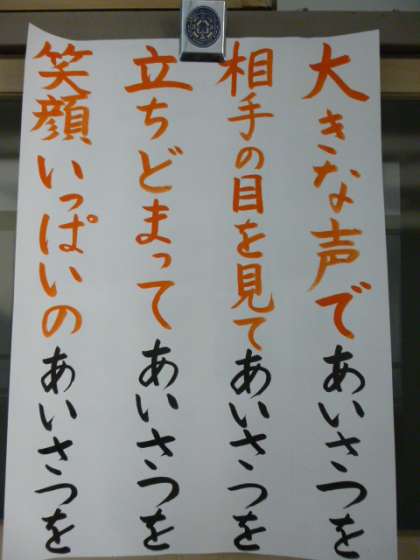 大きな声であいさつを
相手の目を見てあいさつを
立ちどまってあいさつを
笑顔いっぱいのあいさつを